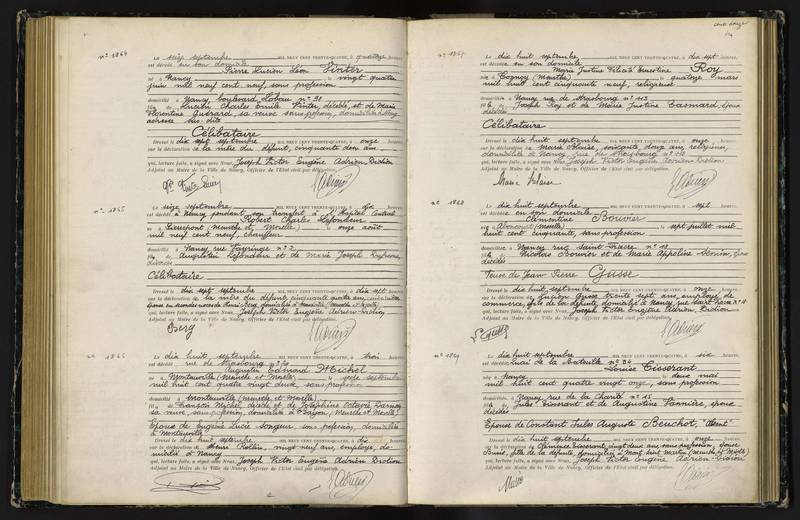 n° 1864
Le seize septembre MIL NEUF CENT TRENTE-QUATRE, à quatorze heures
est décédé en son domicile
Pierre Lucien Léon Pinter
né à Nancy le vingt quatre
juin mil neuf cent neuf, sans profession
domicilié à Nancy, boulevard Lobau n° 38
fils de Lucien Charles Emile Pinter, décédé, et de Marie
Florentine Guérard, sa veuve sans profession, domiciliée à Nancy
adresse sus-dite
Célibataire
Dressé le dix sept septembre MIL NEUF CENT TRENTE-QUATRE, à onze heures
sur la déclaration de la mère du défunt, cinquante deux ans,
qui, lecture faite, a signé avec Nous, Joseph Victor Eugène Adrien Didion
Adjoint au Maire de la Ville de Nancy, Officier de l'Etat civil par délégation.
n° 1865
Le seize septembre MIL NEUF CENT TRENTE-QUATRE, à dix heures
est décédé à Nancy pendant son transfert à l'hôpital Central
Robert Charles Lefondeur
né à Pierrepont (Meurthe et Moselle) le onze août
mil neuf cent neuf, chauffeur
domicilié à Nancy rue n° 2
fils de Augustin Lefondeur et de Marie Joseph
divorcés
Célibataire
Dressé le dix sept septembre MIL NEUF CENT TRENTE-QUATRE, à dix sept heures
sur la déclaration de la mère du défunt, cinquante quatre ans,
qui, lecture faite, a signé avec Nous, Joseph Victor Eugène Adrien Didion
Adjoint au Maire de la Ville de Nancy, Officier de l'Etat civil par délégation.
Berg
n° 1866
Le dix huit septembre MIL NEUF CENT TRENTE-QUATRE, à trois heures
est décédé rue de Strasbourg n°
Augustin Edmond Michel
né à Montauville (Meurthe et Moselle) le seize septembre
mil huit cent quatre vingt deux, sans profession
domicilié à Montauville (Meurthe et Moselle)
fils de François Michel, décédé et de Joséphine Octavie Darney
sa veuve, sans profession, domiciliée à Bayon (Meurthe et Moselle)
Epoux de Eugénie Lucie Songeur, sans profession, domiciliée
à Montauville
Dressé le dix huit septembre MIL NEUF CENT TRENTE-QUATRE, à dix heures
sur la déclaration de Henri, vingt neuf ans, employé, do-
micilié à Nancy
qui, lecture faite, a signé avec Nous, Joseph Victor Eugène Adrien Didion
Adjoint au Maire de la Ville de Nancy, Officier de l'Etat civil par délégation.
n° 1867
Le dix huit septembre MIL NEUF CENT TRENTE-QUATRE, à dix sept heures
est décédée en son domicile
Marie Justine Félicité Ernestine Roy
née à (Meurthe) le quatorze mars
mil huit cent cinquante neuf, religieuse
domiciliée à Nancy rue de Strasbourg n° 113
fille de Joseph Roy et de Marie Justine Casmard, époux
décédés
Célibataire
Dressé le dix huit septembre MIL NEUF CENT TRENTE-QUATRE, à onze heures
sur la déclaration de Marie, soixante douze ans, religieuse,
domiciliée à Nancy, rue de Strasbourg n°
qui, lecture faite, a signé avec Nous, Joseph Victor Eugène Adrien Didion
Adjoint au Maire de la Ville de Nancy, Officier de l'Etat civil par délégation.
n° 1868
Le dix huit septembre MIL NEUF CENT TRENTE-QUATRE, à sept heures
est décédée en son domicile
Clémentine Bouvier
née à Aboncourt (Moselle) le sept juillet mil
huit cent cinquante, sans profession
domiciliée à Nancy rue Saint-Fiacre n°
fille de Nicolas Bouvier et Marie Appoline Henin, époux
décédés
Veuve de Jean Pierre Gusse
Dressé le dix huit septembre MIL NEUF CENT TRENTE-QUATRE, à onze heures
sur la déclaration de Gusse, trente sept ans, employé de
commerce, fils de la défunte, domicilié à Nancy, rue Saint Fiacre n°
qui, lecture faite, a signé avec Nous, Joseph Victor Eugène Adrien Didion
Adjoint au Maire de la Ville de Nancy, Officier de l'Etat civil par délégation.
n° 1869
Le dix huit septembre MIL NEUF CENT TRENTE-QUATRE, à six heures
est décédée quai de la Bataille n° 34
Louise Tisserant
née à Nancy le deux mai
mil huit cent quatre vingt onze, sans profession
domiciliée à Nancy, rue de la Charité n° 15
fille de Jules Tisserant et de Augustine Vannière, époux
décédés
Epouse de Constant Jules Auguste Beuchot, "absent"
Dressé le dix huit septembre MIL NEUF CENT TRENTE-QUATRE, à onze heures
sur la déclaration de Clémence Tisserant, vingt deux ans, sans profession, épouse
qui, lecture faite, a signé avec Nous, Joseph Victor Eugène Adrien Didion
Adjoint au Maire de la Ville de Nancy, Officier de l'Etat civil par délégation.